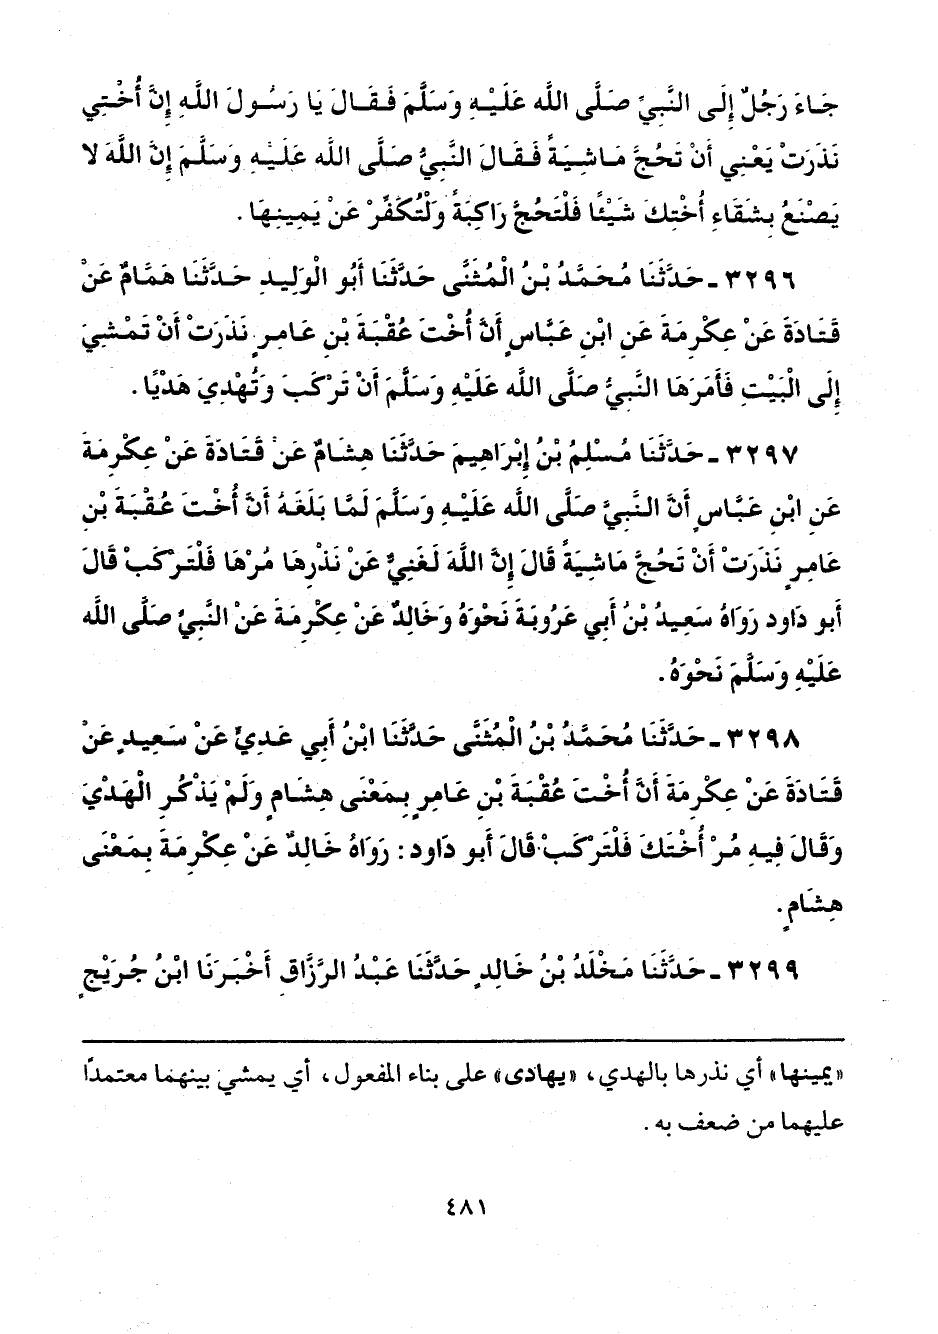 جَاءَ رَجُلٌ إِلَى النَّبِيِّ صَلَّى اللَّه عَلَيْهِ وَسَلَّمَ فَقَالَ يَا رَسُولَ اللَّهِ إِنَّ أُخْتِي
نَذَرَتْ يَعْنِي أَنْ تَحُجَّ مَاشِيَةً فَقَالَ النَّبِيُّ صَلَّى اللَّه عَلَيْهِ وَسَلَّمَ إِنَّ اللَّهَ لا
يَصْنَعُ بِشَقَاءِ أُخْتِكَ شَيْئًا فَلْتَحُجَّ رَاكِبَةً وَلْتُكَفِّرْ عَنْ يَمِينِهَا.
٣٢٩٦ ـ حَدَّثَنَا مُحَمَّدُ بْنُ الْمُثَنَّى حَدَّثَنَا أَبُو الْوَلِيدِ حَدَّثَنَا هَمَّامٌ عَنْ
قَتَادَةَ عَنْ عِكْرِمَةَ عَنِ ابْنِ عَبَّاسٍ أَنَّ أُخْتَ عُقْبَةَ بْنِ عَامِرٍ نَذَرَتْ أَنْ تَمْشِيَ
إِلَى الْبَيْتِ فَأَمَرَهَا النَّبِيُّ صَلَّى اللَّه عَلَيْهِ وَسَلَّمَ أَنْ تَرْكَبَ وَتُهْدِيَ هَدْيًا.
٣٢٩٧ ـ حَدَّثَنَا مُسْلِمُ بْنُ إِبْرَاهِيمَ حَدَّثَنَا هِشَامٌ عَنْ قَتَادَةَ عَنْ عِكْرِمَةَ
عَنِ ابْنِ عَبَّاسٍ أَنَّ النَّبِيَّ صَلَّى اللَّه عَلَيْهِ وَسَلَّمَ لَمَّا بَلَغَهُ أَنَّ أُخْتَ عُقْبَةَ بْنِ
عَامِرٍ نَذَرَتْ أَنْ تَحُجَّ مَاشِيَةً قَالَ إِنَّ اللَّهَ لَغَنِيٌّ عَنْ نَذْرِهَا مُرْهَا فَلْتَرْكَبْ قَالَ
أَبو دَاود رَوَاهُ سَعِيدُ بْنُ أَبِي عَرُوبَةَ نَحْوَهُ وَخَالِدٌ عَنْ عِكْرِمَةَ عَنْ النَّبِيِّ صَلَّى اللَّه
عَلَيْهِ وَسَلَّمَ نَحْوَهُ.
٣٢٩٨ ـ حَدَّثَنَا مُحَمَّدُ بْنُ الْمُثَنَّى حَدَّثَنَا ابْنُ أَبِي عَدِيٍّ عَنْ سَعِيدٍ عَنْ
قَتَادَةَ عَنْ عِكْرِمَةَ أَنَّ أُخْتَ عُقْبَةَ بْنِ عَامِرٍ بِمَعْنَى هِشَامٍ وَلَمْ يَذْكُرِ الْهَدْيَ
وَقَالَ فِيهِ مُرْ أُخْتَكَ فَلْتَرْكَبْ قَالَ أَبو دَاود: رَوَاهُ خَالِدٌ عَنْ عِكْرِمَةَ بِمَعْنَى
هِشَامٍ.
٣٢٩٩ ـ حَدَّثَنَا مَخْلَدُ بْنُ خَالِدٍ حَدَّثَنَا عَبْدُ الرَّزَّاقِ أَخْبَرَنَا ابْنُ جُرَيْجٍ
«يمينها» أي نذرها بالهدي، «يهادى» على بناء المفعول، أي يمشي بينهما معتمدًا
عليهما من ضعف به.
٤٨١